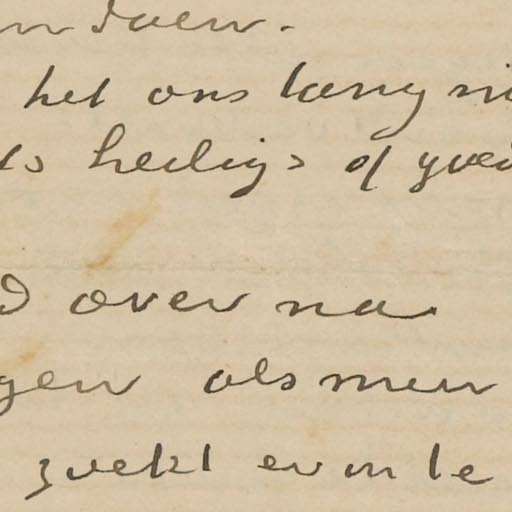 en doen.
het ons lang ni
ts heiligs of goed
d over na
gen als men
zoekt er in te